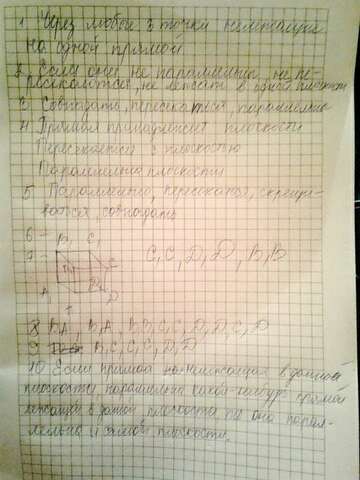 1. Через любые 3 точки не лежащие
на одной прямой
2. Если они не параллельны, не пе-
ресекаются, не лежат в одной плоскости
3. Совпадать, пересекаться, параллельно
4 Прямая принадлежит плоскости
Пересекается с плоскостью
Параллельна плоскости
5. Параллельно, пересекаться, скрещи-
ваться, совпадать
6 -
B₁ C₁
7 - C₁C, D₁D, B₁B
A₁ D
8 B₁A₁, B₁B, C₁C, D₁D, C₁D
9 B₁C₁, C₁C, D₁D
10 Если прямая не лежащая в данной
плоскости параллельна какой-нибудь прямой
лежащей в данной плоскости то она парал-
лельна и самой плоскости.